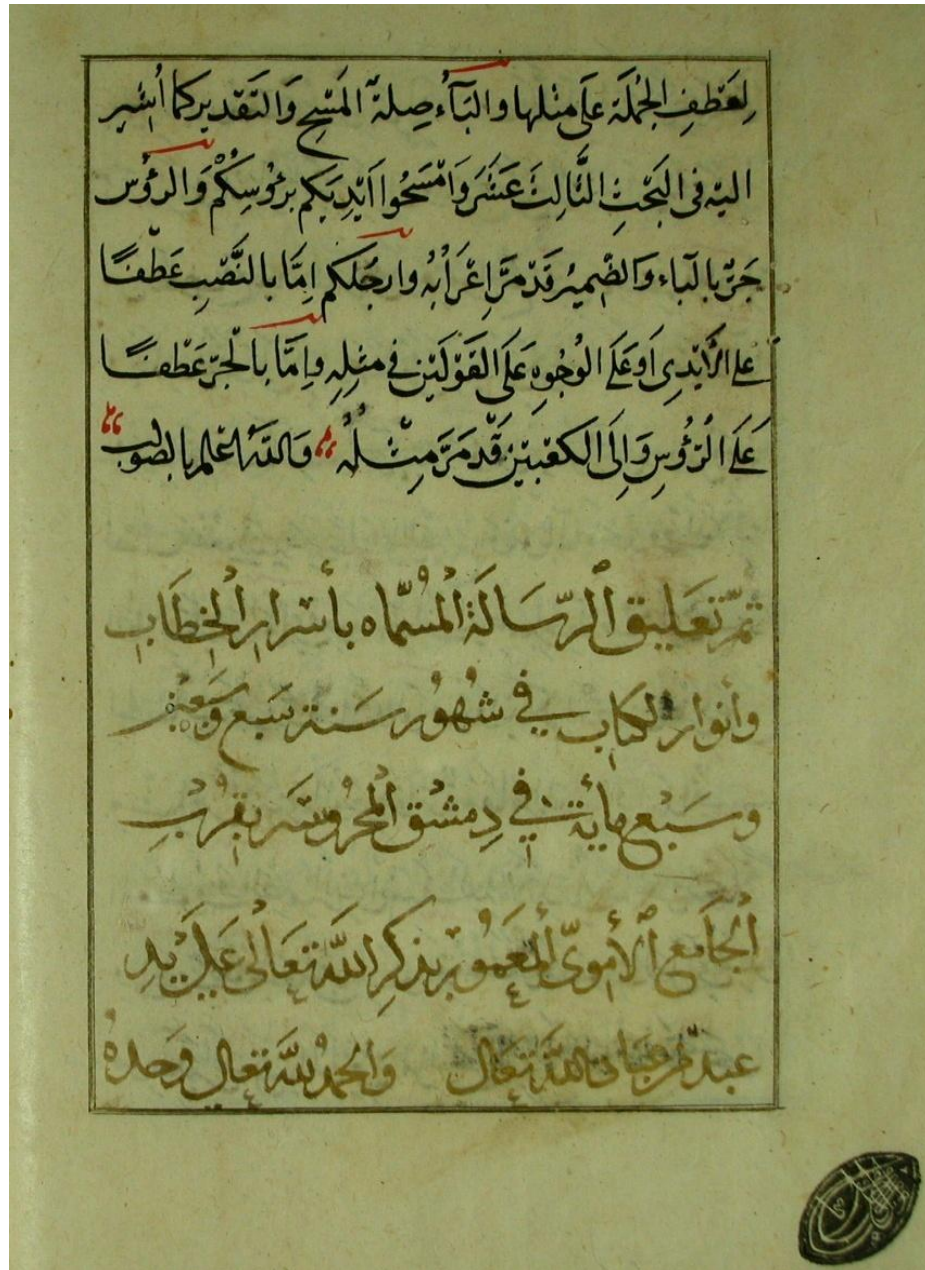 لِعَطْفِ الجُملَة عَلَى مثلها والبَآءُ صِلَةُ المَسْحِ وَالتَقدير كما أشير
اليْه فى البَحْثِ الثَّالِثَ عَشَرَ وَامْسَحُوا اَيْدِيَكم برُؤسِكُمْ وَالرؤُس
جَرٌّ بالبَاء وَالضميرُ قَدْ مَرَّ اِعْرَابُهُ وارجُلكم اِمَّا بالنَّصْبِ عَطْفًا
عَلَى الأَيْدِى اَو عَلَى الوُجُوهِ عَلَى القَوْلَيْنِ فى مثلِهِ وإمَّا بالجَرِّ عَطْفًا
عَلَى الرُّؤُسِ وَإلَى الكعْبَيْنِ قَدْ مَرَّ مِثْلُهُ وَاللهُ اعْلم بالصواب
تمّ تعَليق الرّسَالَة المُسمّاه بأسْرار الخِطَابِ
وأنوار الكتاب في شهُور سَنة سَبع وسَبعين
وسَبْع مائة في دِمشق المحرُوسَة بقُرْبِ
الجَامع الأموىّ المعمُور بذكرِ اللهِ تعَالى عَلى يَد
عبد اللهِ تعَالى وَالحمدُ للهِ تعَالى وَحدهُ